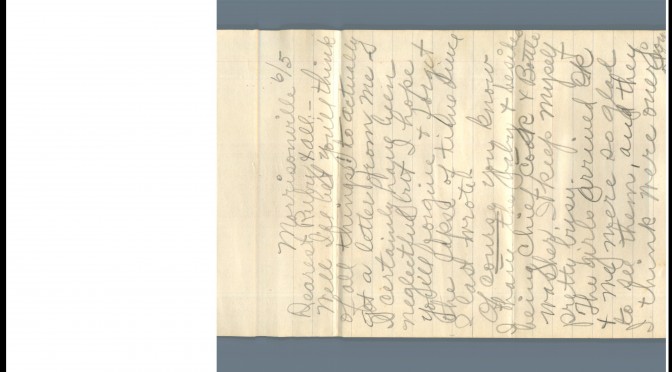 Morrisonville 6/5
Dearest Ruby & all. -
Well I'll bet you'll think
of all things, to actually
got a letter from me. I
certainly have been
neglectful but I hope
you'll forgive & forget
the lapse of time since
I last wrote.
Of course you know
I have the Baby & besides
being chief cook & Bottle
washer, I keep myself
pretty busy.
The girls arrived ok
& my were so glad
to see them, and they
I think were